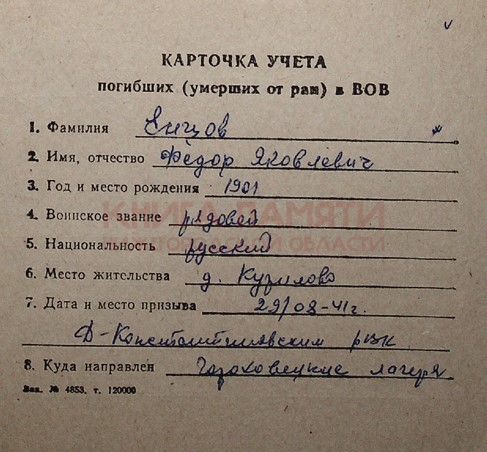 КАРТОЧКА УЧЕТА
погибших (умерших от ран) в ВОВ
1. Фамилия Енцов
2. Имя, отчество Фёдор Яковлевич
3. Год и место рождения 1901
4. Воинское звание рядовой
5. Национальность русский
6. Место жительства д. Курилово
7. Дата и место призыва 29/08-41г.
Д-Константиновским рвк
8. Куда направлен Гороховецкие лагеря
Зак. № 4853. т. 120000
КНИГА ПАМЯТИ
ОБЛАСТИ